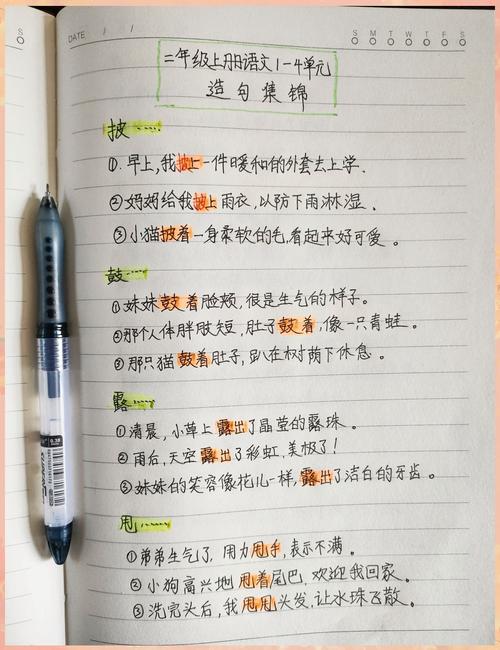 DATE / /
S M T W T F S
二年级上册语文1-4单元
造句集锦
披……
①.早上,我披上一件暖和的外套去上学.
②妈妈给我披上雨衣,以防下雨淋湿.
③小猫披着一身柔软的毛,看起来好可爱。
鼓……
①妹妹鼓着脸颊,很是生气的样子。
②那个人体胖肢短,肚子鼓着,像一只青蛙。
③那只猫鼓着肚子,趴在树荫下休息。
露……
①清晨,小草上露出了晶莹的露珠.
②雨后,天空露出了彩虹,美极了!
③妹妹的笑容像花儿一样,露出了洁白的牙齿。
甩……
①弟弟生气了,用力甩手,表示不满。
②小狗高兴地甩着尾巴,欢迎我回家。
③洗完头后,我甩甩头发,让水珠飞散。